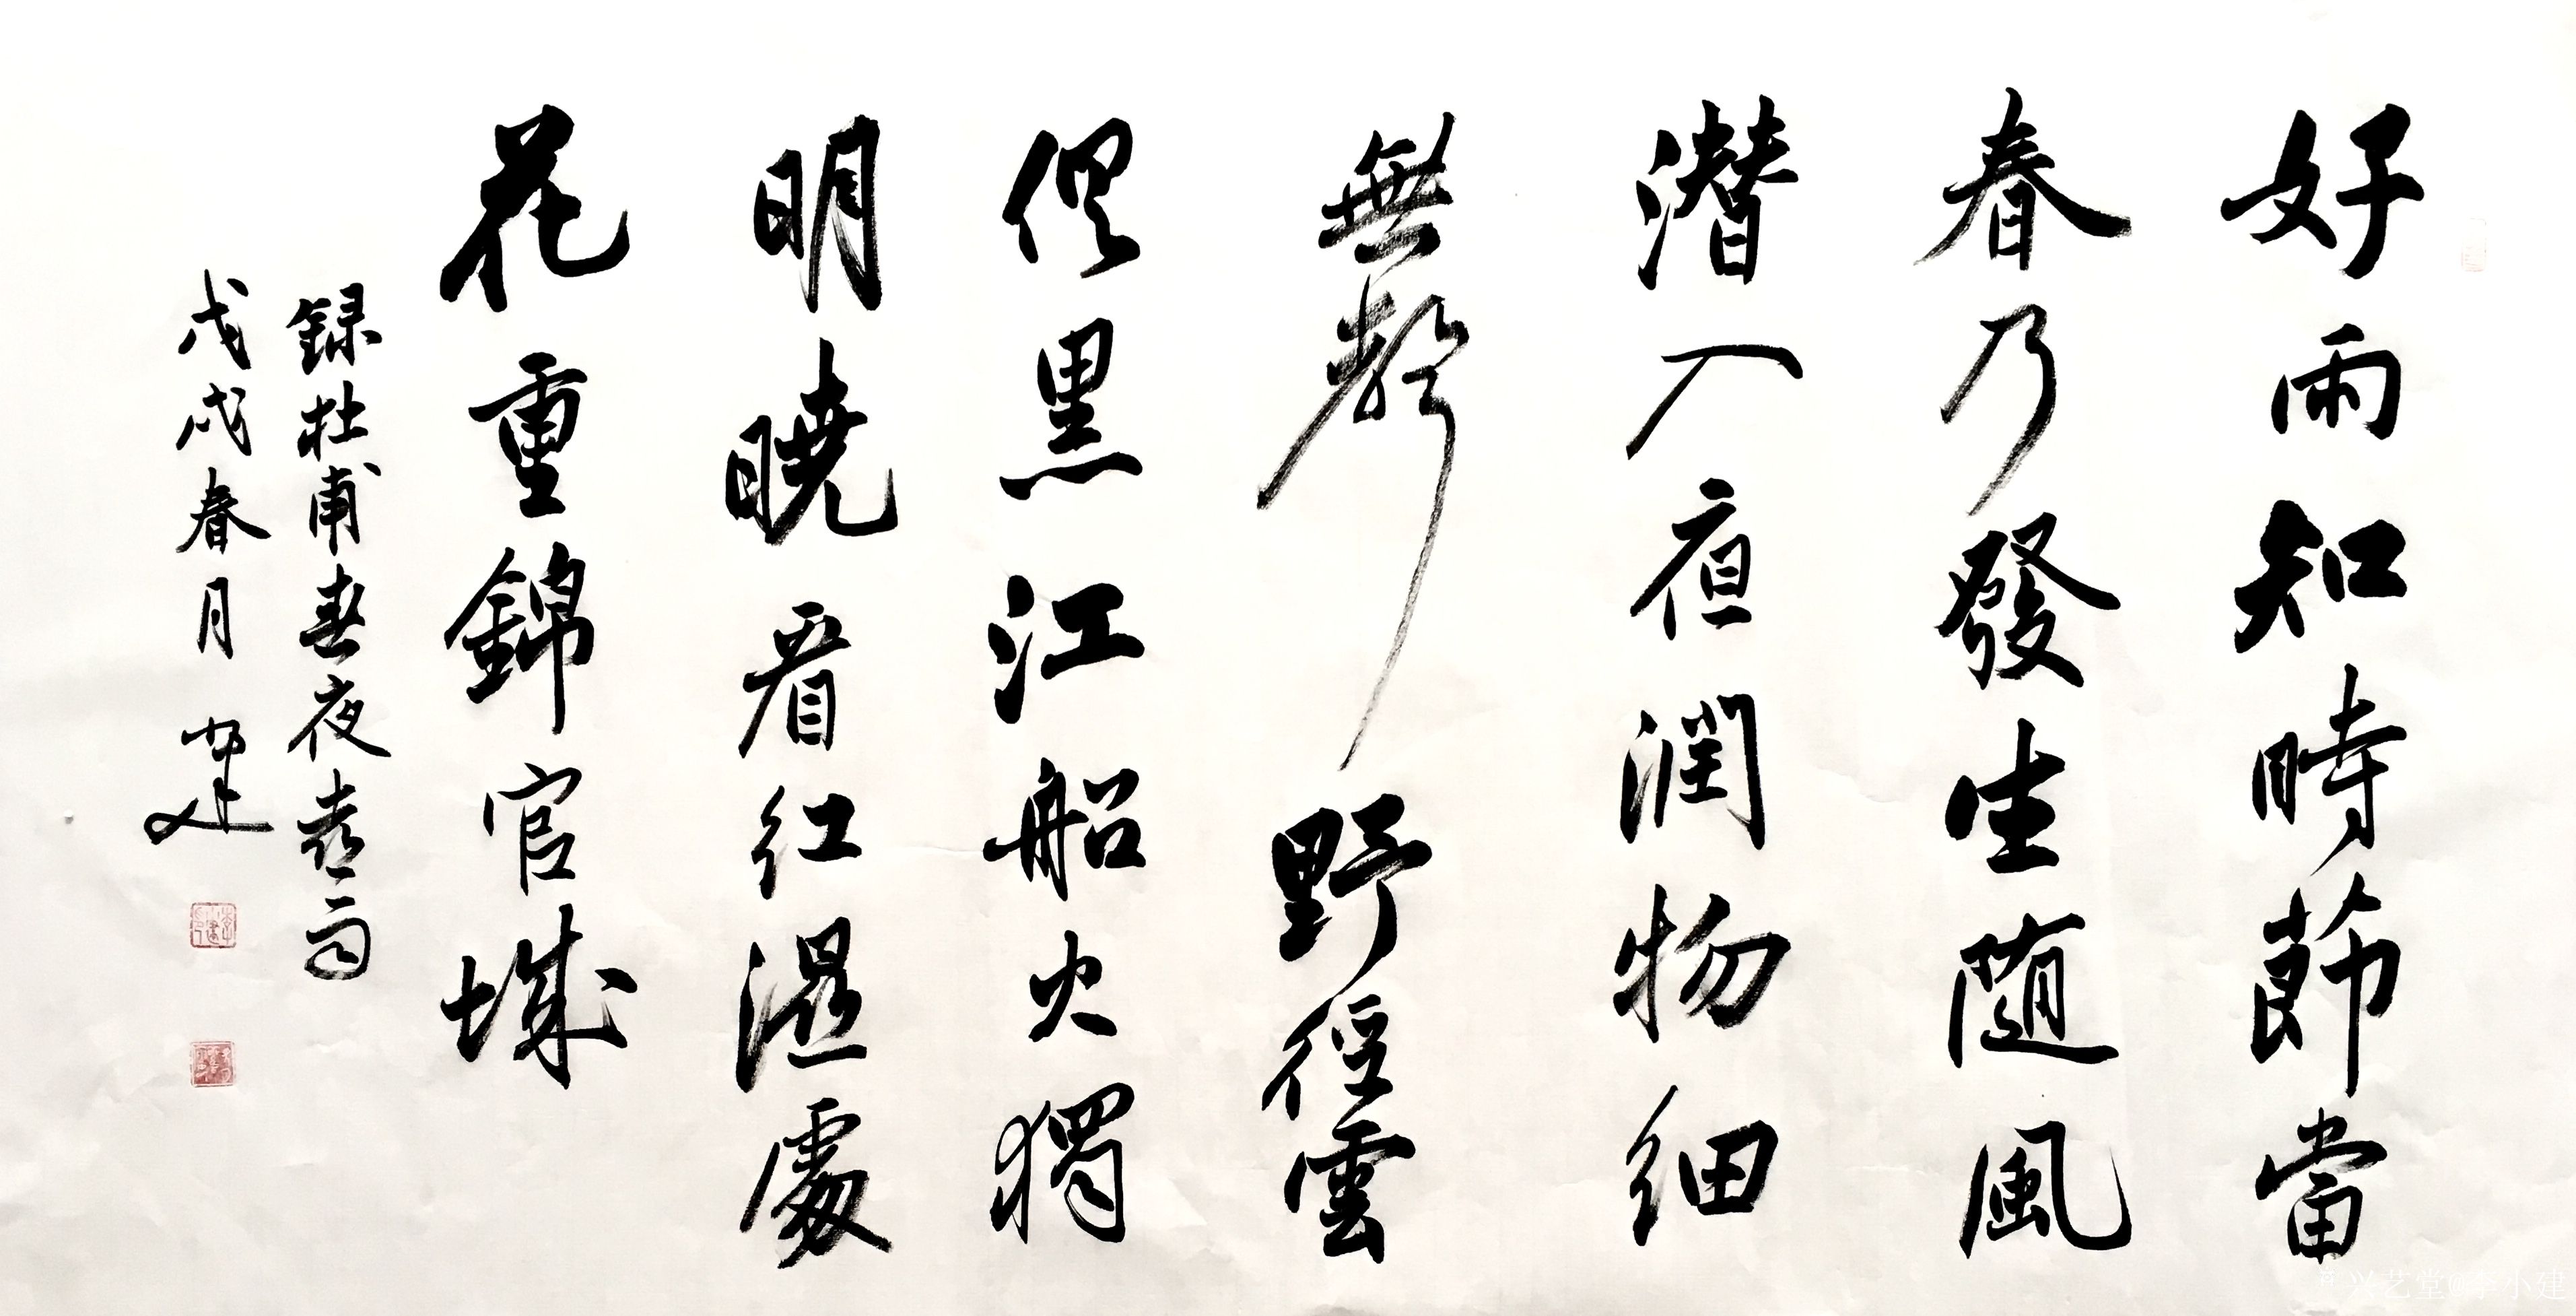 好雨知時節當
春乃發生随風
潛入夜潤物細
無聲野徑雲
俱黑江船火獨
明曉看红濕處
花重錦官城
録杜甫春夜喜雨
戊戌春月小建
兴艺堂@李小建